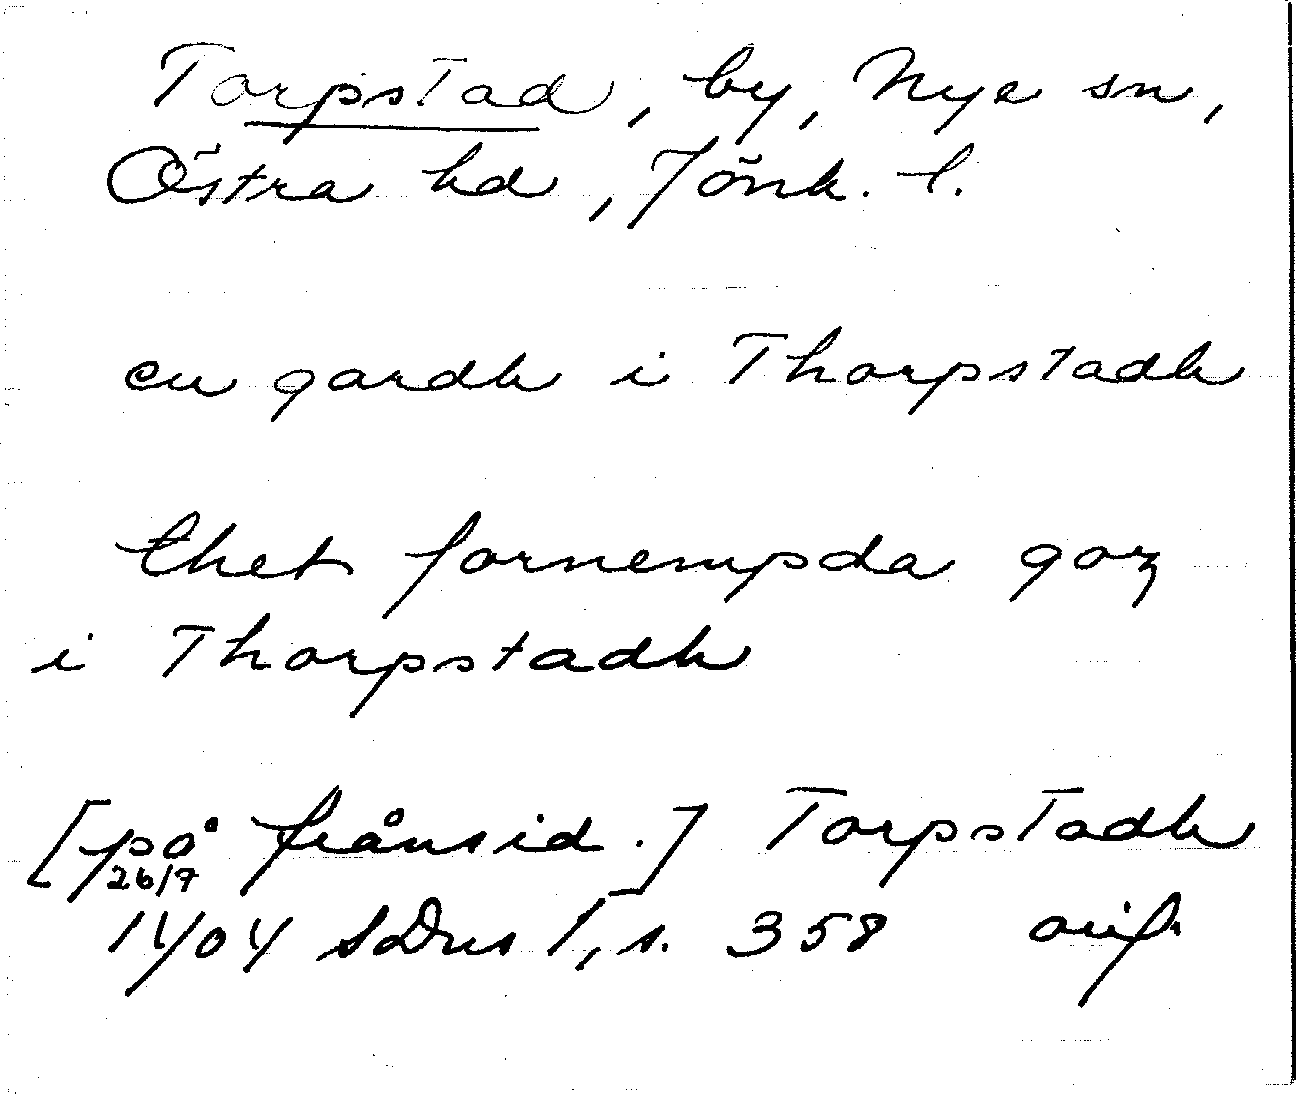 Torpstad, by, Nye sn,
Östra hd, Jönk. l.
en gardh i Thorpstadh
thet fornempda goz
i Thorpstadh
[på frånsid.] Torpstadh
26/7
1404 SDns 1, s. 358